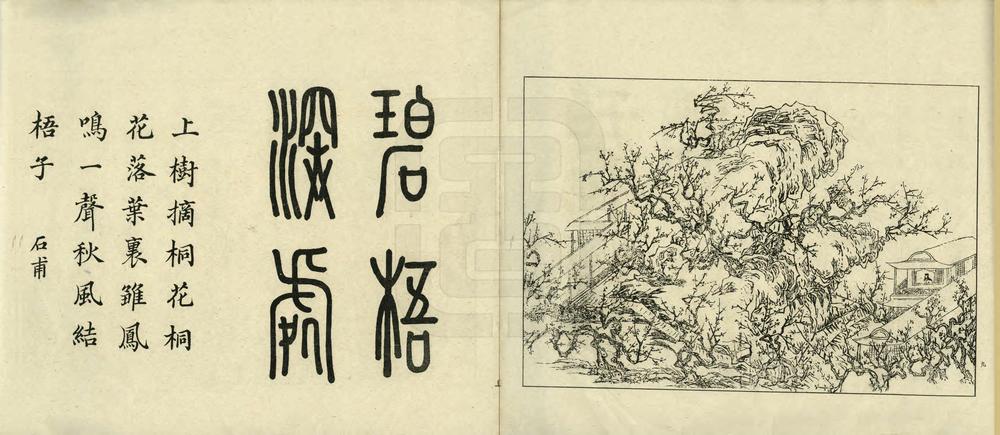 碧梧
深處
上樹摘桐花桐
花落葉裏雛鳳
鳴一聲秋風結
梧子 石甫